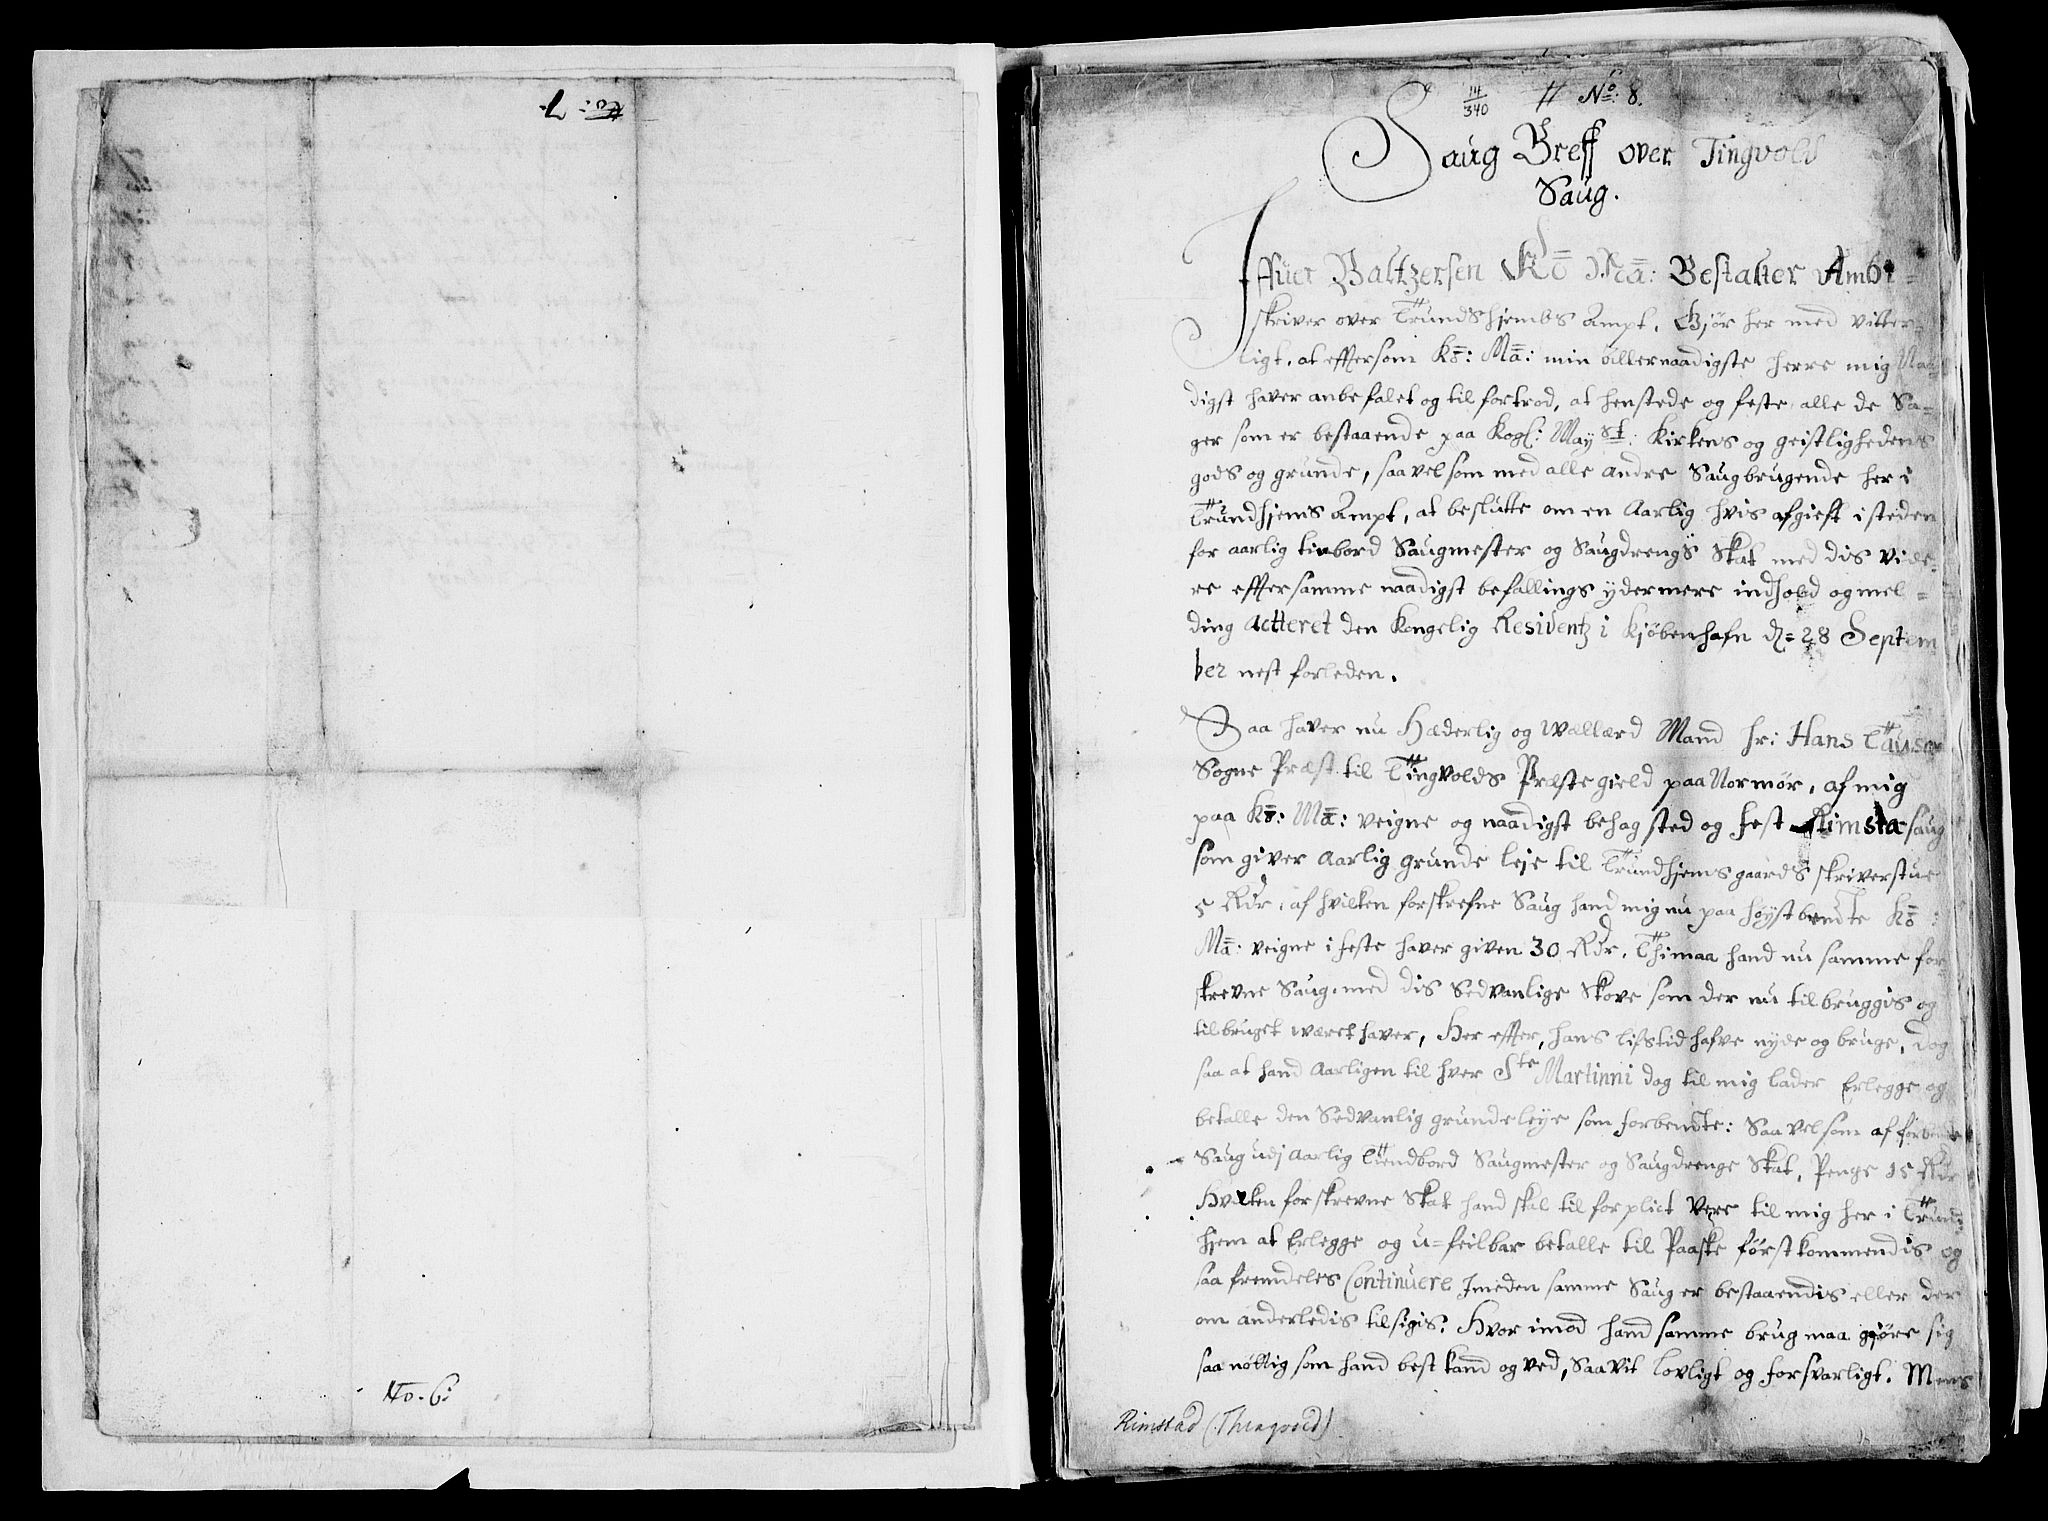 No: 7.
No. 6:
14/340 No: 8.
Saug Breff over Tingvold
Saug.
Iffuer Baltzersen Ko Ma: Bestalter Ambt-
skriver over Trundshjembs Ampt, Gjør her med vitter-
ligt, at effersom Ko: Ma: min allernaadigste herre mig Naa-
digst haver anbefalet og til fortrod, at henstede og feste alle de Sa-
ger som er bestaaende paa Kogl: Mayst: Kirkens og geistlighedens
gods og grunde, saa vel som med alle andre Saugbrugende her i
Trundhjems Ampt, at beslutte om en Aarlig hvis afgieft i steden
for aarlig tinbord Saugmester og Saugdrengs Skat med dis vide-
re effersamme naadigst befallings ydermere indhold og mel-
ding actteret den Kongelig Residentz i Kjøbenhafn d= 28 Septem-
ber nest forleden.
Saa haver nu Hæderlig og wællærd Mand hr: Hans Tausen
Sogne Præst til Tingvolds Præstegield paa Normør, af mig
paa Ko: Ma: veigne og naadigst behag sted og fest Rimsta saug
som giver Aarlig grunde leje til Trundhjems gaards skriverstue
5 Rdr, af hvilken forskrefne Saug hand mig nu paa høystbemdte Ko:
Ma: veigne i feste haver given 30 Rdr, Thi maa hand nu samme for-
skrevne Saug, med dis Sedvanlige Skove som der nu til bruggis og
tilbruget wæret haver, Her effter, hans lifstid hafve nyde og bruge, dog
saa at hand Aarligen til hver Ste Martinni dag til mig lader Erlegge og
betalle den Sedvanlig grundeleye som forbemdte: Saavelsom af forbemdte
Saug udj Aarlig Tiendbord Saugmester og Saugdrenge Skat, Penge 15 Rdr
Hvilken forskrevne Skat hand skal til forplict være til mig her i Trund-
hjem at Erlegge og u=feilbar betalle til Paaske førstkommendis og
saa fremdeles Continuere Imeden samme Saug er bestaaendis eller der
om anderledis tilsigis. Hvor imod hand samme brug maa gjøre sig
saa nøttig som hand best kand og ved, Saavit lovligt og forsvarligt. Mens
Rimstad (Thingvold)